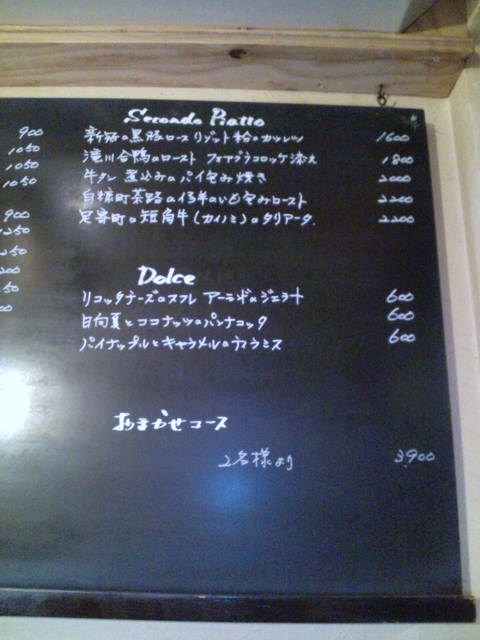 Secondo Piatto
900
新得の黒豚ロース リゾット粉のカツレツ 1600
1050
滝川合鴨のロースト フォアグラコロッケ添え 1800
1050
牛タン 煮込みのパイ包み焼き 2000
1050
白糠町茶路の仔羊のいも包みロースト 2200
900
足寄町の短角牛(カイノミ)のタリアータ 2200
1250
250
200
50
00
Dolce
リコッタチーズのスフレ アーモンドのジェラート 600
日向夏とココナッツのパンナコッタ 600
パイナップルとキャラメルのティラミス 600
おまかせコース
2名様より 3,900